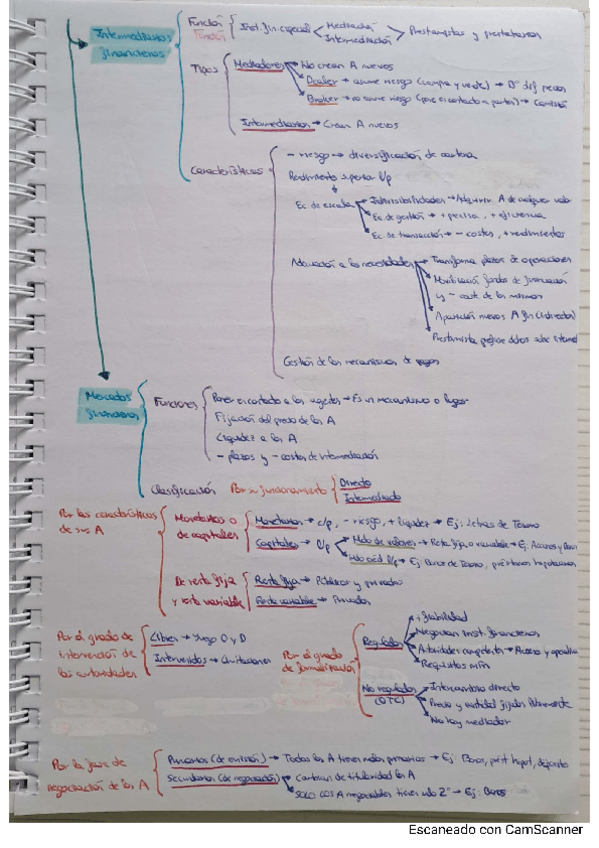 Intermediarios financieros
Función
Función
Inst. fin. especial
Mediación
Intermediación
Prestamistas y prestatarios
Tipos
Mediadores → No crean A nuevos
Dealer → asume riesgo (compra y vende) → Bº dif precios
Broker → no asume riesgo (pone en contacto a partes) → Comisión
Intermediarios → Crean A nuevos
Características
- riesgo → diversificación de cartera
Rendimiento superior l/p
Ec de escala
Indivisibilidades → Adquirir A de cualquier valor
Ec de gestión → + precisa, + eficiencia
Ec de transacción → - costes, + rendimientos
Adecuación a las necesidades
Transforma plazos de operaciones
Movilización fondos de financiación
↳ - coste de los mismos
Aparición nuevos A fin (indirectos)
Prestamista prefiere
Gestión de los mecanismos de pagos
Mercados financieros
Funciones
Poner en contacto a los sujetos → Es un mecanismo o lugar
Fijación del precio de los A
Liquidez a los A
- plazos y - costes de intermediación
Clasificación
Por su funcionamiento
Directo
Intermediado
Por las características de sus A
Monetarios o de capitales
Monetarios → c/p, - riesgo, + liquidez → Ej: Letras de Tesoro
Capitales → l/p
Mdo de valores → Renta fija o variable → Ej: Acciones y Bonos
Mdo créd l/p → Ej: Bonos de Tesoro, préstamos hipotecarios
De renta fija y renta variable
Renta fija → Públicos y privados
Renta variable → Privados
Por el grado de intervención de las autoridades
Libres → Juego O y D
Intervenidos → Limitaciones
Por el grado de formalización
Regulados
+ fiabilidad
Negocian inst. financieras
Autoridades competentes → Acceso y operativa
Requisitos mín
No regulados (OTC)
Intercambio directo
Precio y cantidad fijados libremente
No hay mediador
Por la fase de negociación de los A
Primarios (de emisión) → Todos los A tienen mdos primarios → Ej: Bonos, prést hipot, depósito
Secundarios (de negociación)
Cambian de titularidad los A
SOLO los A negociables tienen mdo 2º → Ej: Bonos
Escaneado con CamScanner